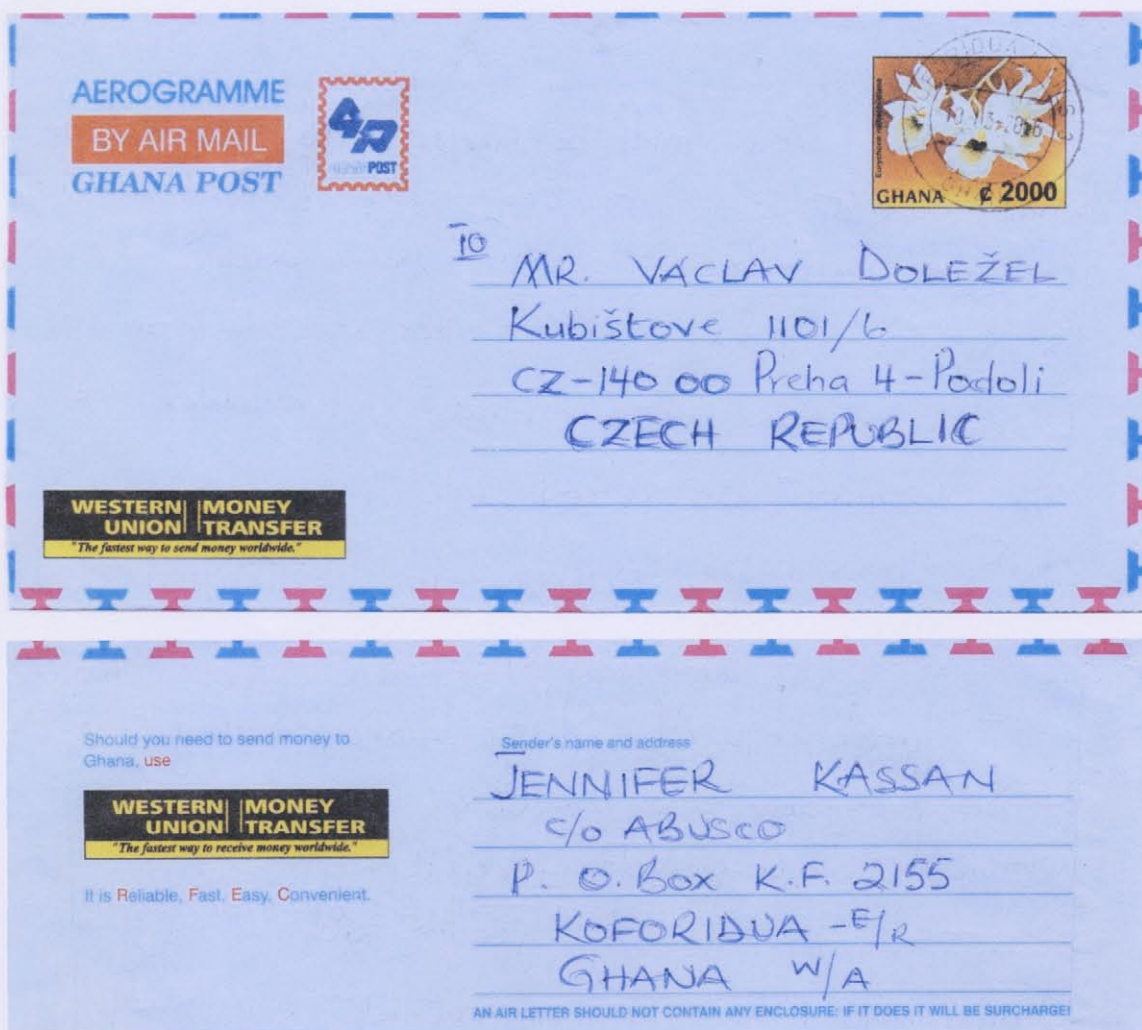 AEROGRAMME
BY AIR MAIL
GHANA POST
POST
GHANA ₵ 2000
TO
MR. VACLAV DOLEŽEL
Kubištove 1101/6
CZ-140 00 Preha 4-Podoli
CZECH REPUBLIC
WESTERN UNION MONEY TRANSFER
"The fastest way to send money worldwide."
Should you need to send money to
Ghana, use
WESTERN UNION MONEY TRANSFER
"The fastest way to receive money worldwide."
It is Reliable, Fast, Easy, Convenient.
Sender's name and address
JENNIFER KASSAN
c/o ABUSCO
P. O. Box K.F. 2155
KOFORIDUA -E/R
GHANA W/A
AN AIR LETTER SHOULD NOT CONTAIN ANY ENCLOSURE: IF IT DOES IT WILL BE